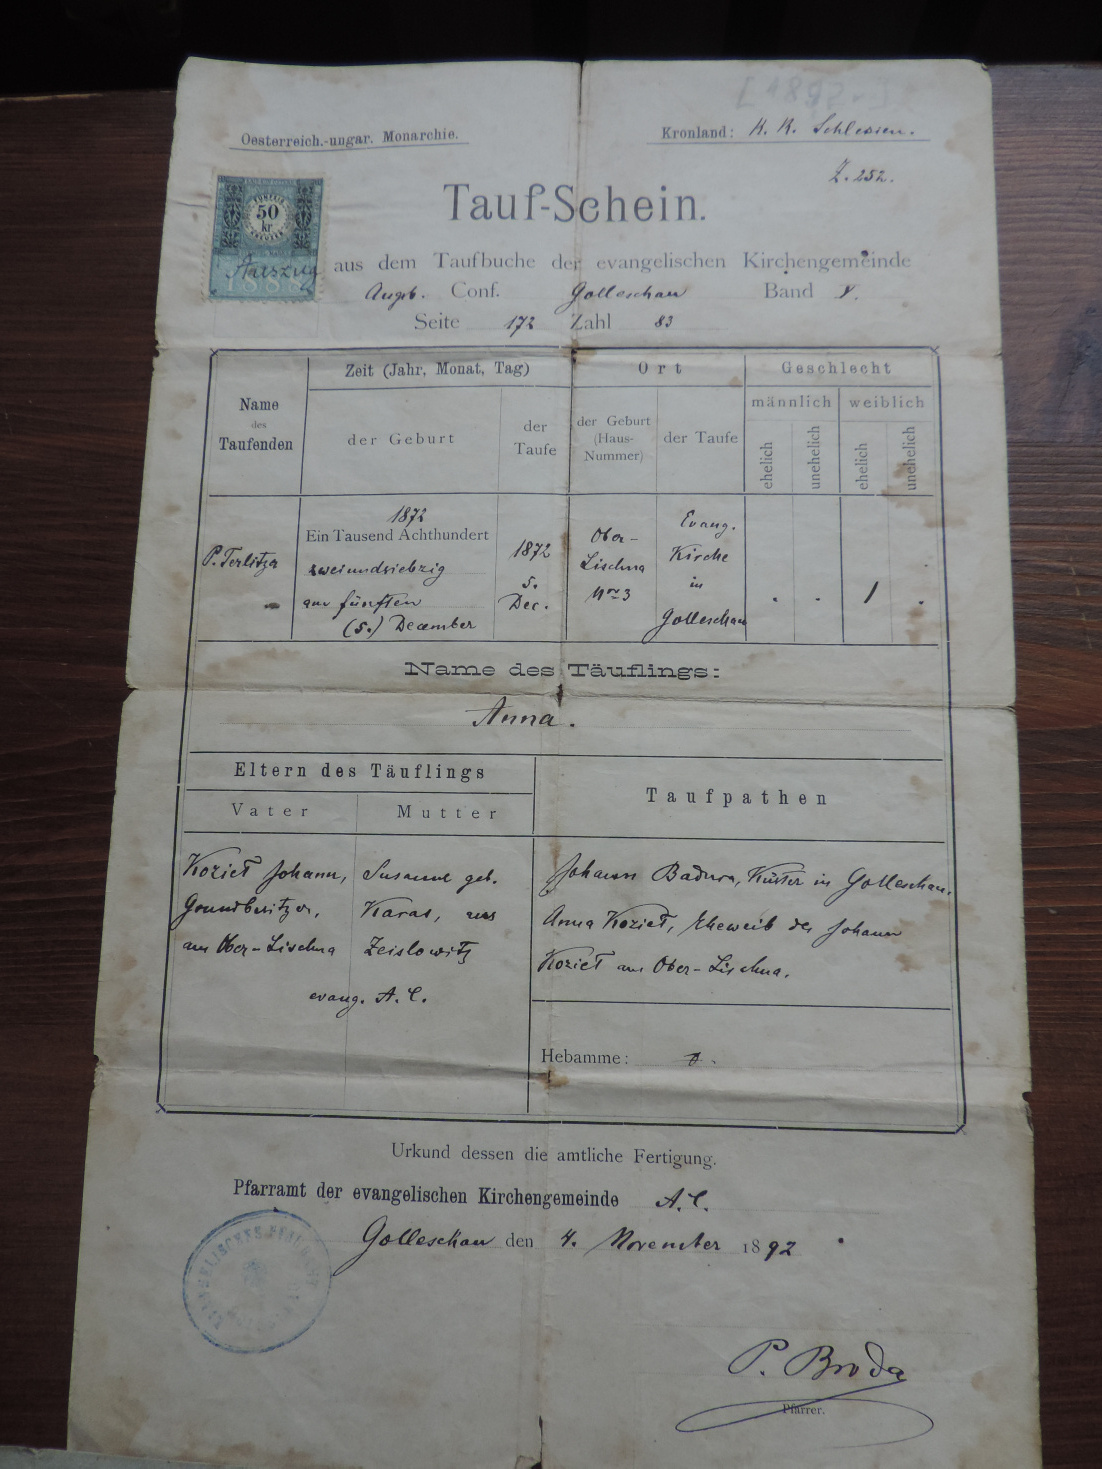 [1892.]
Oesterreich.-ungar. Monarchie.
Kronland: K. K. Schlesien.
Z. 252.
50
kr
Auszug
1888
Tauf-Schein.
aus dem Taufbuche der evangelischen Kirchengemeinde
Augsb. Conf. Golleschau Band V.
Seite 172 Zahl 83
Name
des
Taufenden
Zeit (Jahr, Monat, Tag)
der Geburt
der
Taufe
Ort
der Geburt
(Haus-
Nummer)
der Taufe
Geschlecht
männlich
weiblich
ehelich
unehelich
ehelich
unehelich
P. Terlitza
1872
Ein Tausend Achthundert
zweiundsiebzig
am fünften
(5.) December
1872
5.
Dec.
Ober-
Lischna
Nro 3
Evang.
Kirche
in
Golleschau
1
Name des Täuflings:
Anna.
Eltern des Täuflings
Vater
Mutter
Taufpathen
Kozieł Johann,
Grundbesitzer,
aus Ober-Lischna
Susanne geb.
Karas, aus
Zeislowitz
evang. A. C.
Johann Badura, Küster in Golleschau.
Anna Kozieł, Eheweib des Johann
Kozieł aus Ober-Lischna.
Hebamme:
Urkund dessen die amtliche Fertigung.
Pfarramt der evangelischen Kirchengemeinde A. C.
Golleschau den 4. November 1892
P. Broda
Pfarrer.